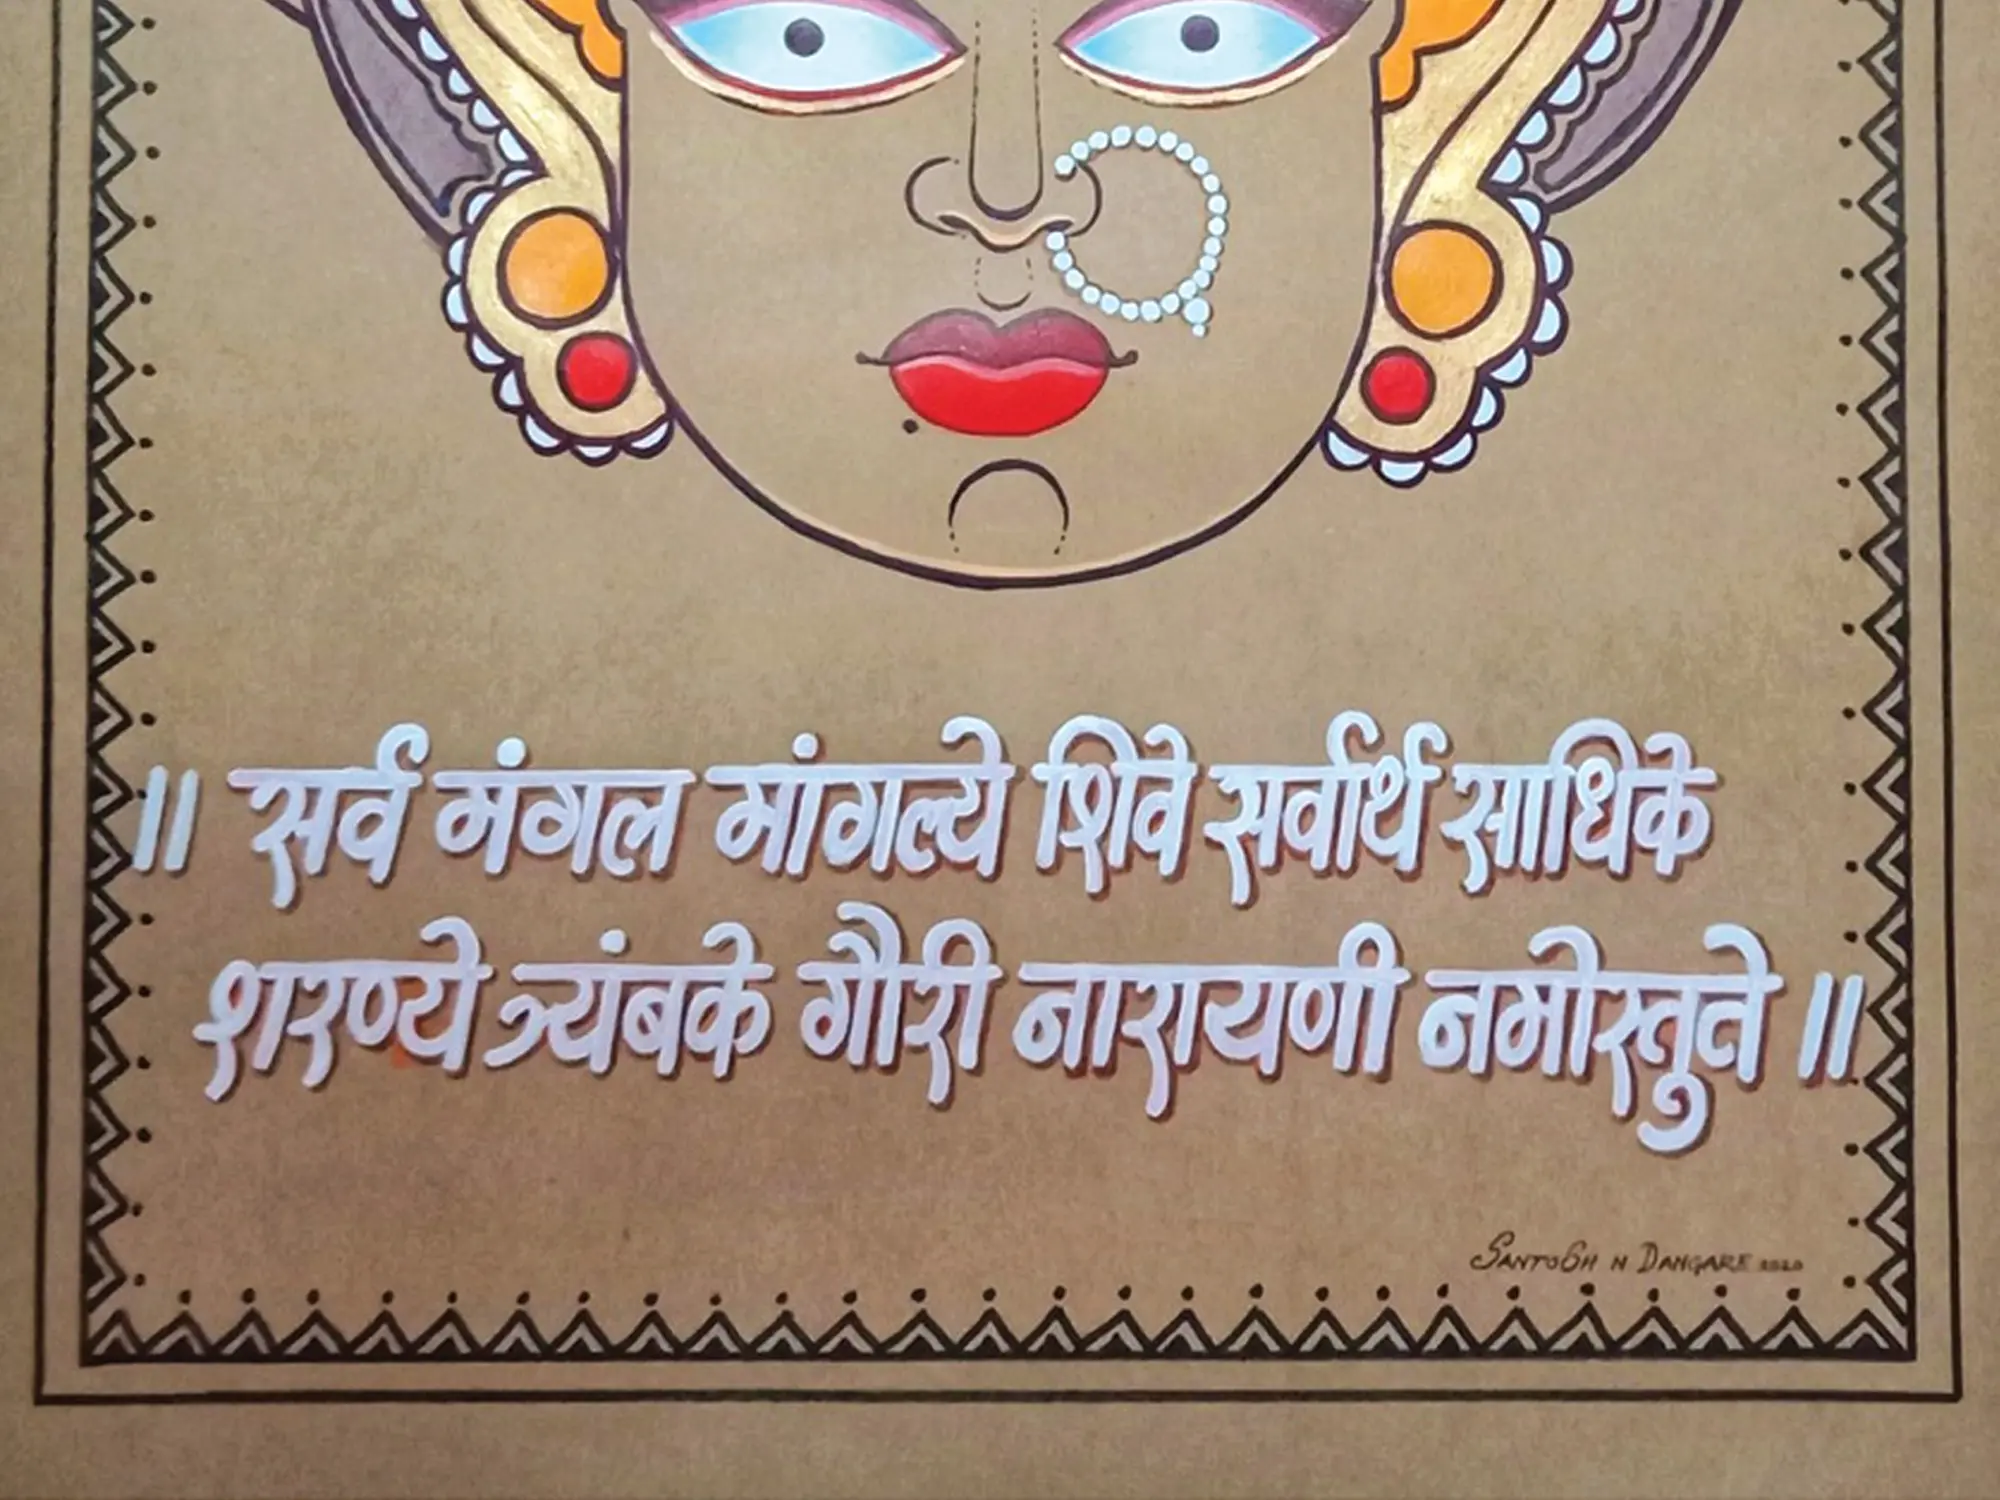 ॥ सर्व मंगल मांगल्ये शिवे सर्वार्थ साधिके
शरण्ये त्र्यंबके गौरी नारायणी नमोस्तुते ॥
SANTOSH N DANGARE 2020